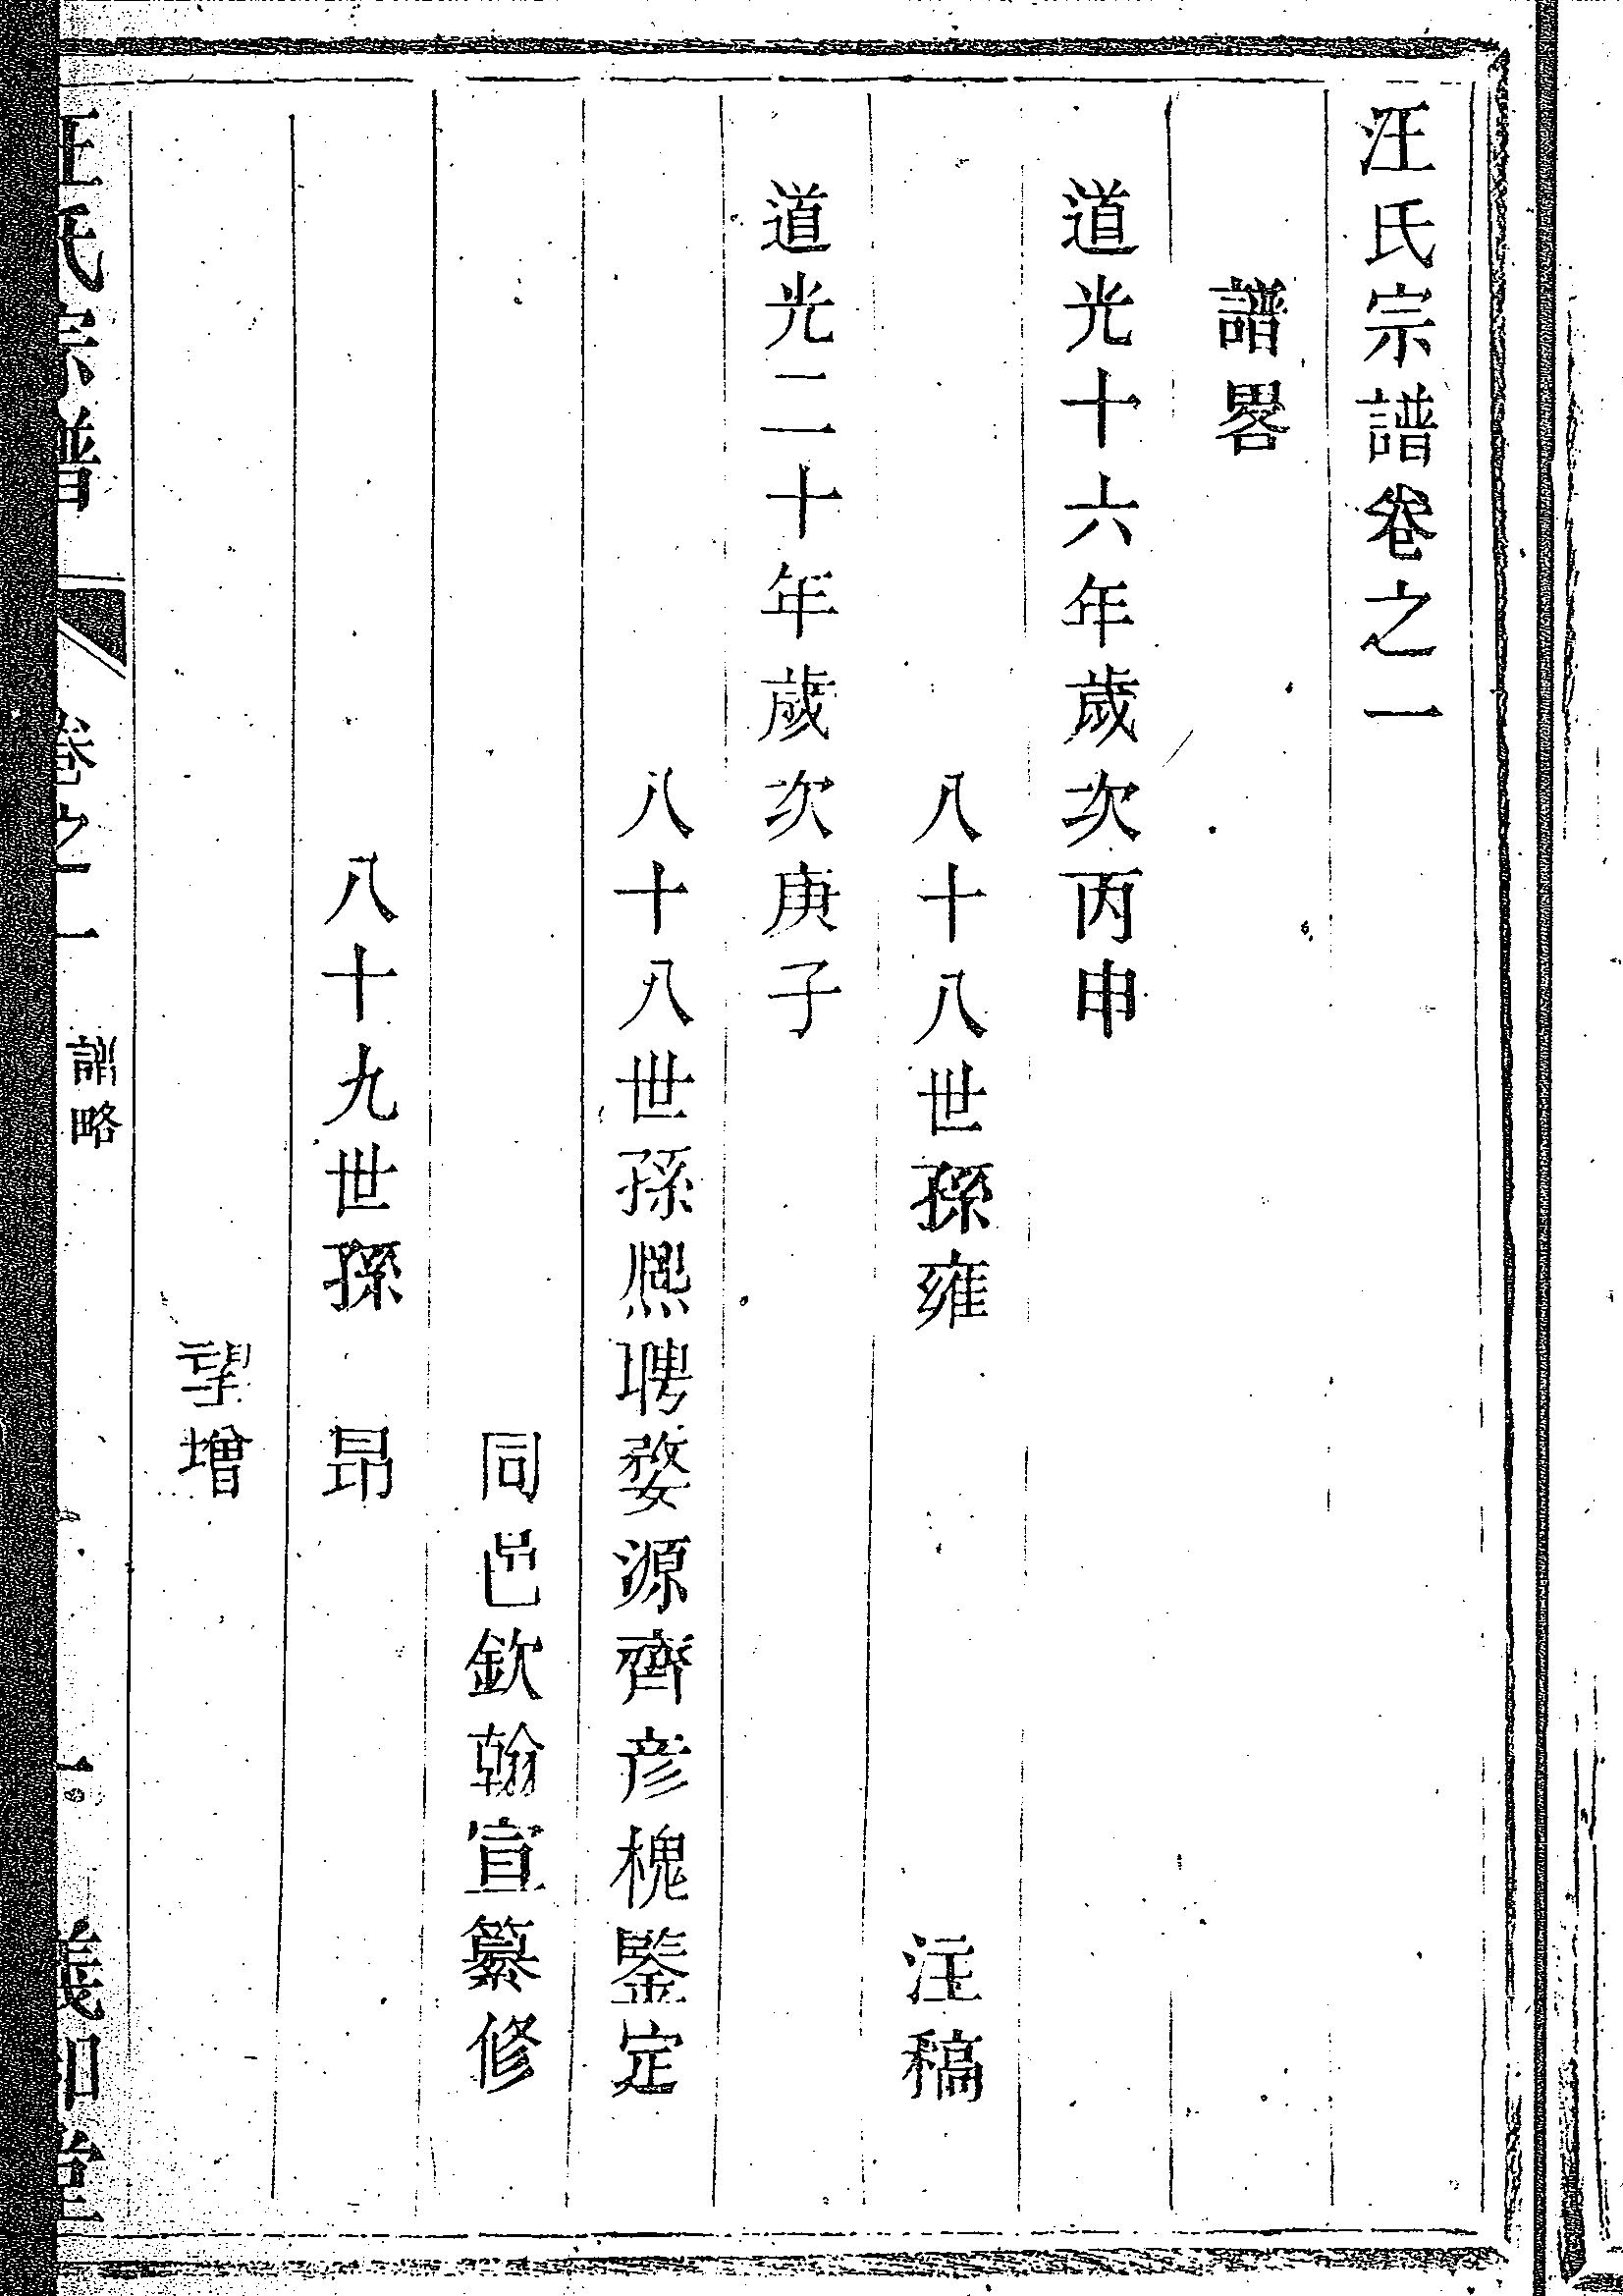 汪氏宗譜卷之一
譜畧
道光十六年歲次丙申
八十八世孫雍 注稿
道光二十年歲次庚子
八十八世孫熈聘婺源齊彦槐鑒定
同邑欽翰宣纂修
八十九世孫 昂
增
汪氏宗譜 卷之一 譜略 一 義和堂